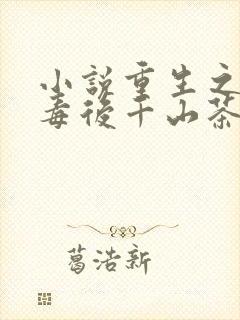 小說重生之
毒後千山茶
葛浩新